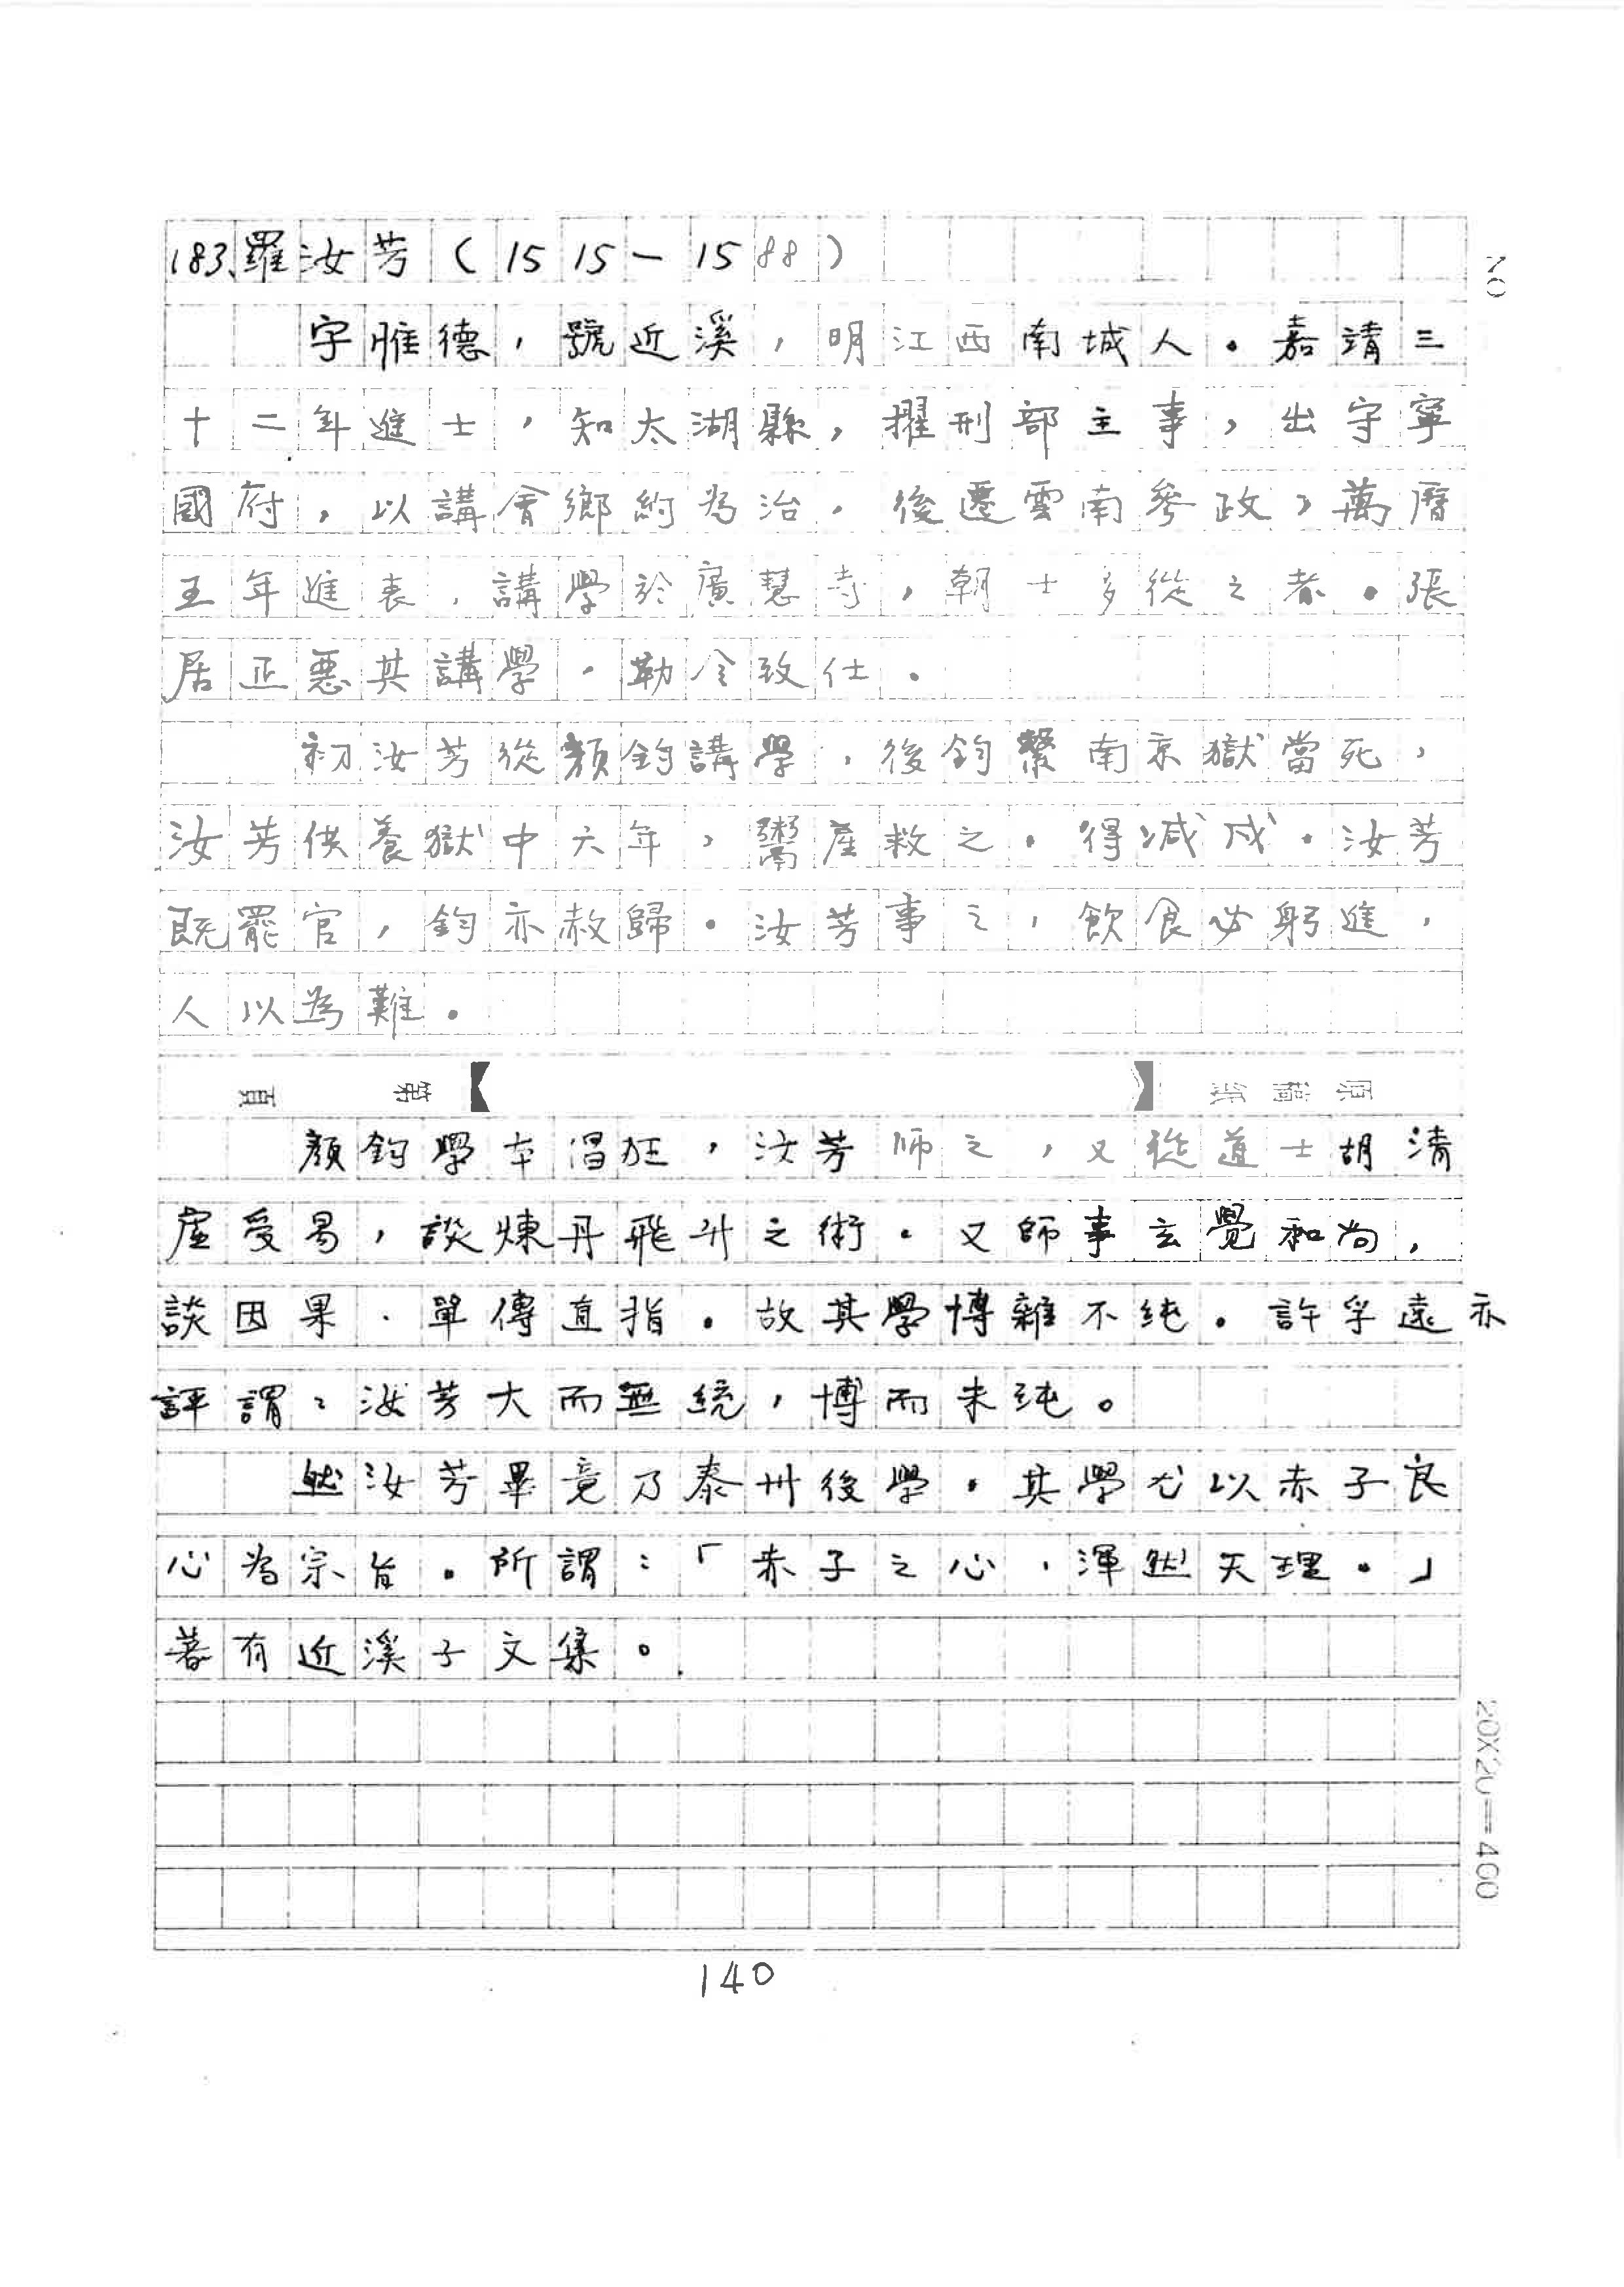 183、羅汝芳(1515-1588)
字惟德,號近溪,明江西南城人。嘉靖三
十二年進士,知太湖縣,擢刑部主事,出守寧
國府,以講會鄉約為治,後遷雲南參政,萬曆
五年進表,講學於廣慧寺,朝士多從之者。張
居正惡其講學,勒令致仕。
初汝芳從顏鈞講學,後鈞繫南京獄當死,
汝芳供養獄中六年,鬻產救之,得減戍。汝芳
既罷官,鈞亦赦歸。汝芳事之,飲食必躬進,
人以為難。
頁 第 【 】 紙稿原
顏鈞學本猖狂,汝芳師之,又從道士胡清
虛受易,談煉丹飛升之術。又師事玄覺和尚,
談因果、單傳直指。故其學博雜不純。許孚遠亦
評謂:汝芳大而無統,博而未純。
然汝芳畢竟乃泰州後學,其學尤以赤子良
心為宗旨。所謂:「赤子之心,渾然天理。」
著有近溪子文集。
20X20=400
140